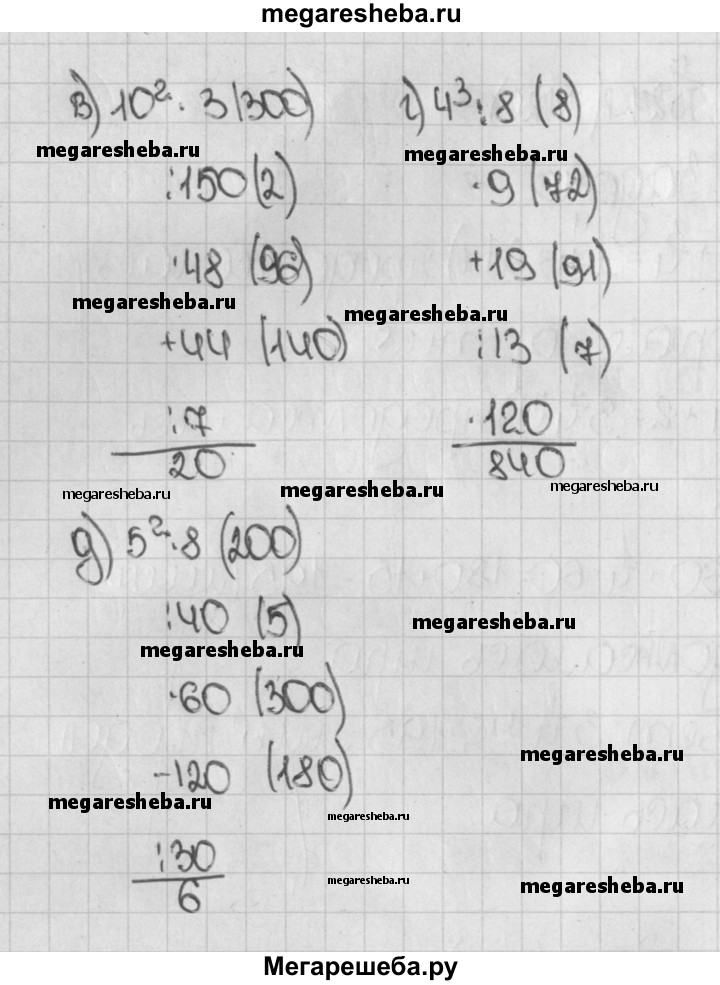 megaresheba.ru
в) 10²·3 (300)
megaresheba.ru
:150 (2)
·48 (96)
megaresheba.ru
+44 (140)
:7
20
megaresheba.ru
г) 4³:8 (8)
megaresheba.ru
·9 (72)
+19 (91)
megaresheba.ru
:13 (7)
·120
840
megaresheba.ru
megaresheba.ru
д) 5²·8 (200)
:40 (5)
megaresheba.ru
megaresheba.ru
·60 (300)
megaresheba.ru
-120 (180)
megaresheba.ru
megaresheba.ru
:30
6
megaresheba.ru
megaresheba.ru
Мегарешеба.ру